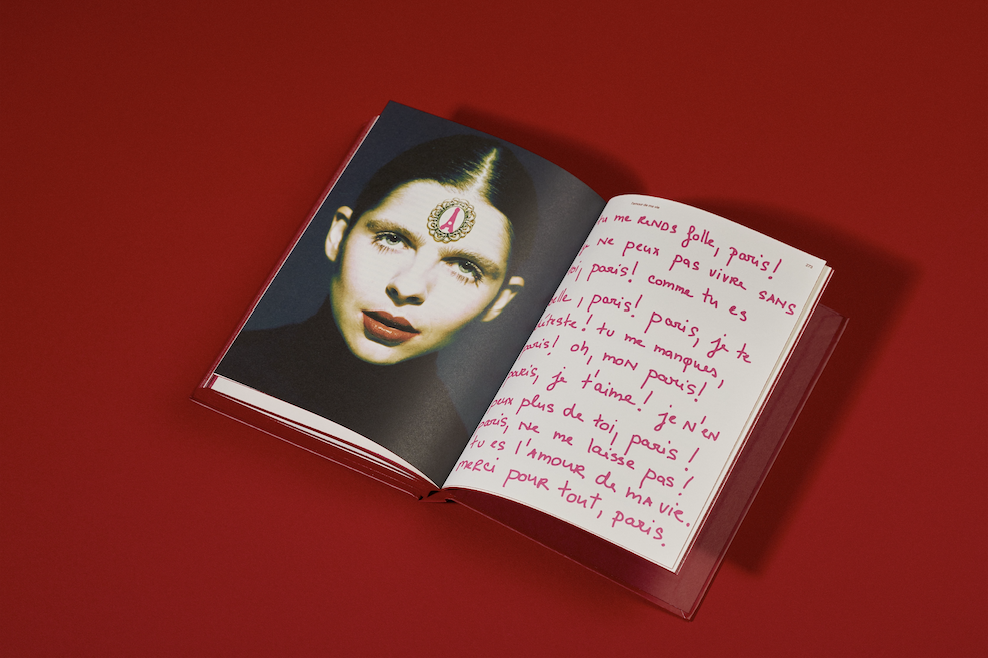 l'amour de ma vie
u me RENDS folle, paris!
ne peux pas vivre SANS
oi, paris! comme tu es
elle, paris! paris, je te
éteste! tu me manques,
paris! oh, mon paris!
paris, je t'aime! je N'EN
peux plus de toi, paris!
paris, Ne me laisse pas!
tu es l'AMOUR de ma vie.
merci pour tout, paris.